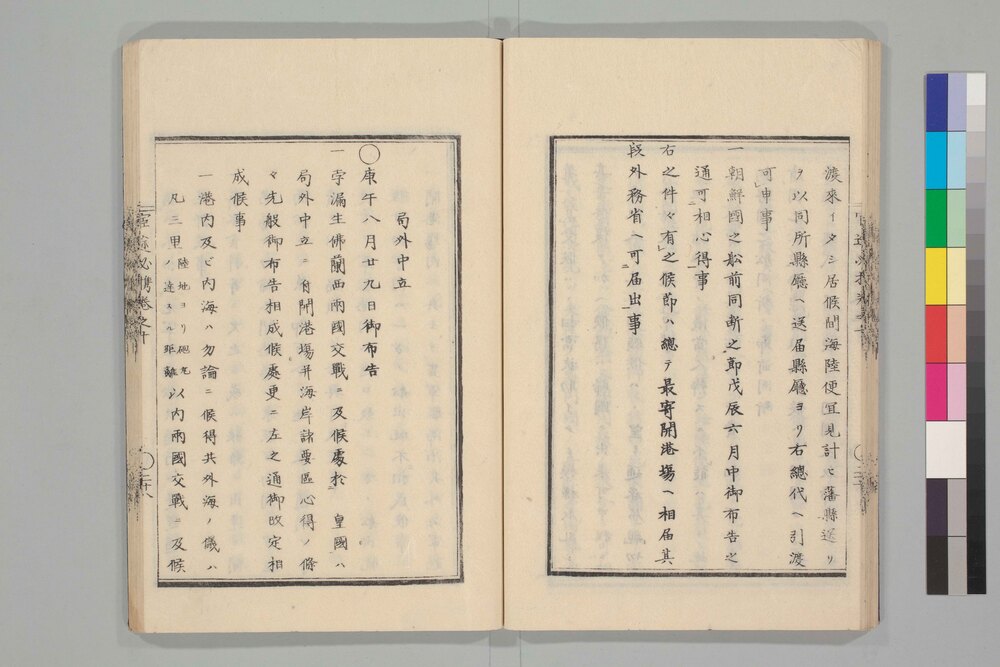 渡來イタシ居候間海陸便宜見計ヒ藩縣送リ
ヲ以同所縣廳ヘ送届縣廳ヨリ右總代ヘ引渡
可申事
一朝鮮國之船前同斷之節戊辰六月中御布告之
通可相心得事
右之件々有之候節ハ總テ最寄開港場ヘ相届其
段外務省ヘ可届出事
局外中立
〇庚午八月廿九日御布告
一孛漏生佛蘭西兩國交戰ニ及候處於 皇國ハ
局外中立ニ有開港塲幷海岸諸要區心得ノ條
々先般御布告相成候處更ニ左之通御改定相
成候事
一港内及ビ内海ハ勿論ニ候得共外海ノ儀ハ
凡三里陸地ヨリ砲丸ノ達スル距離以内兩國交戰ニ及候